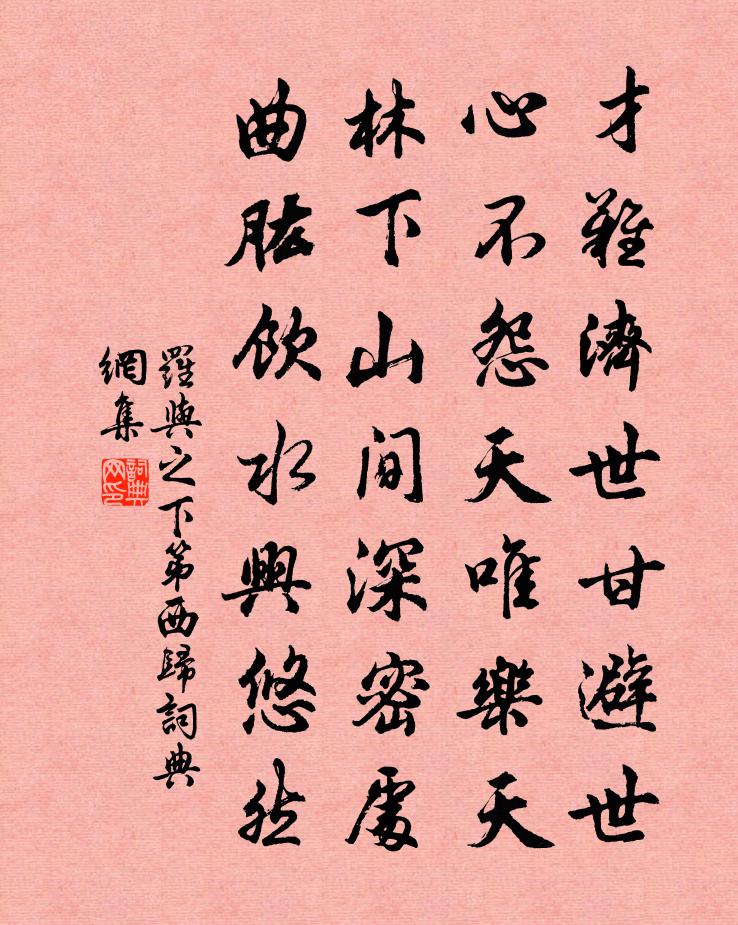 才難濟世甘避世
心不怨天唯樂天
林下山間深密處
曲肱飲水興悠然
羅與之下第西歸詞典
網集
詞典
网印